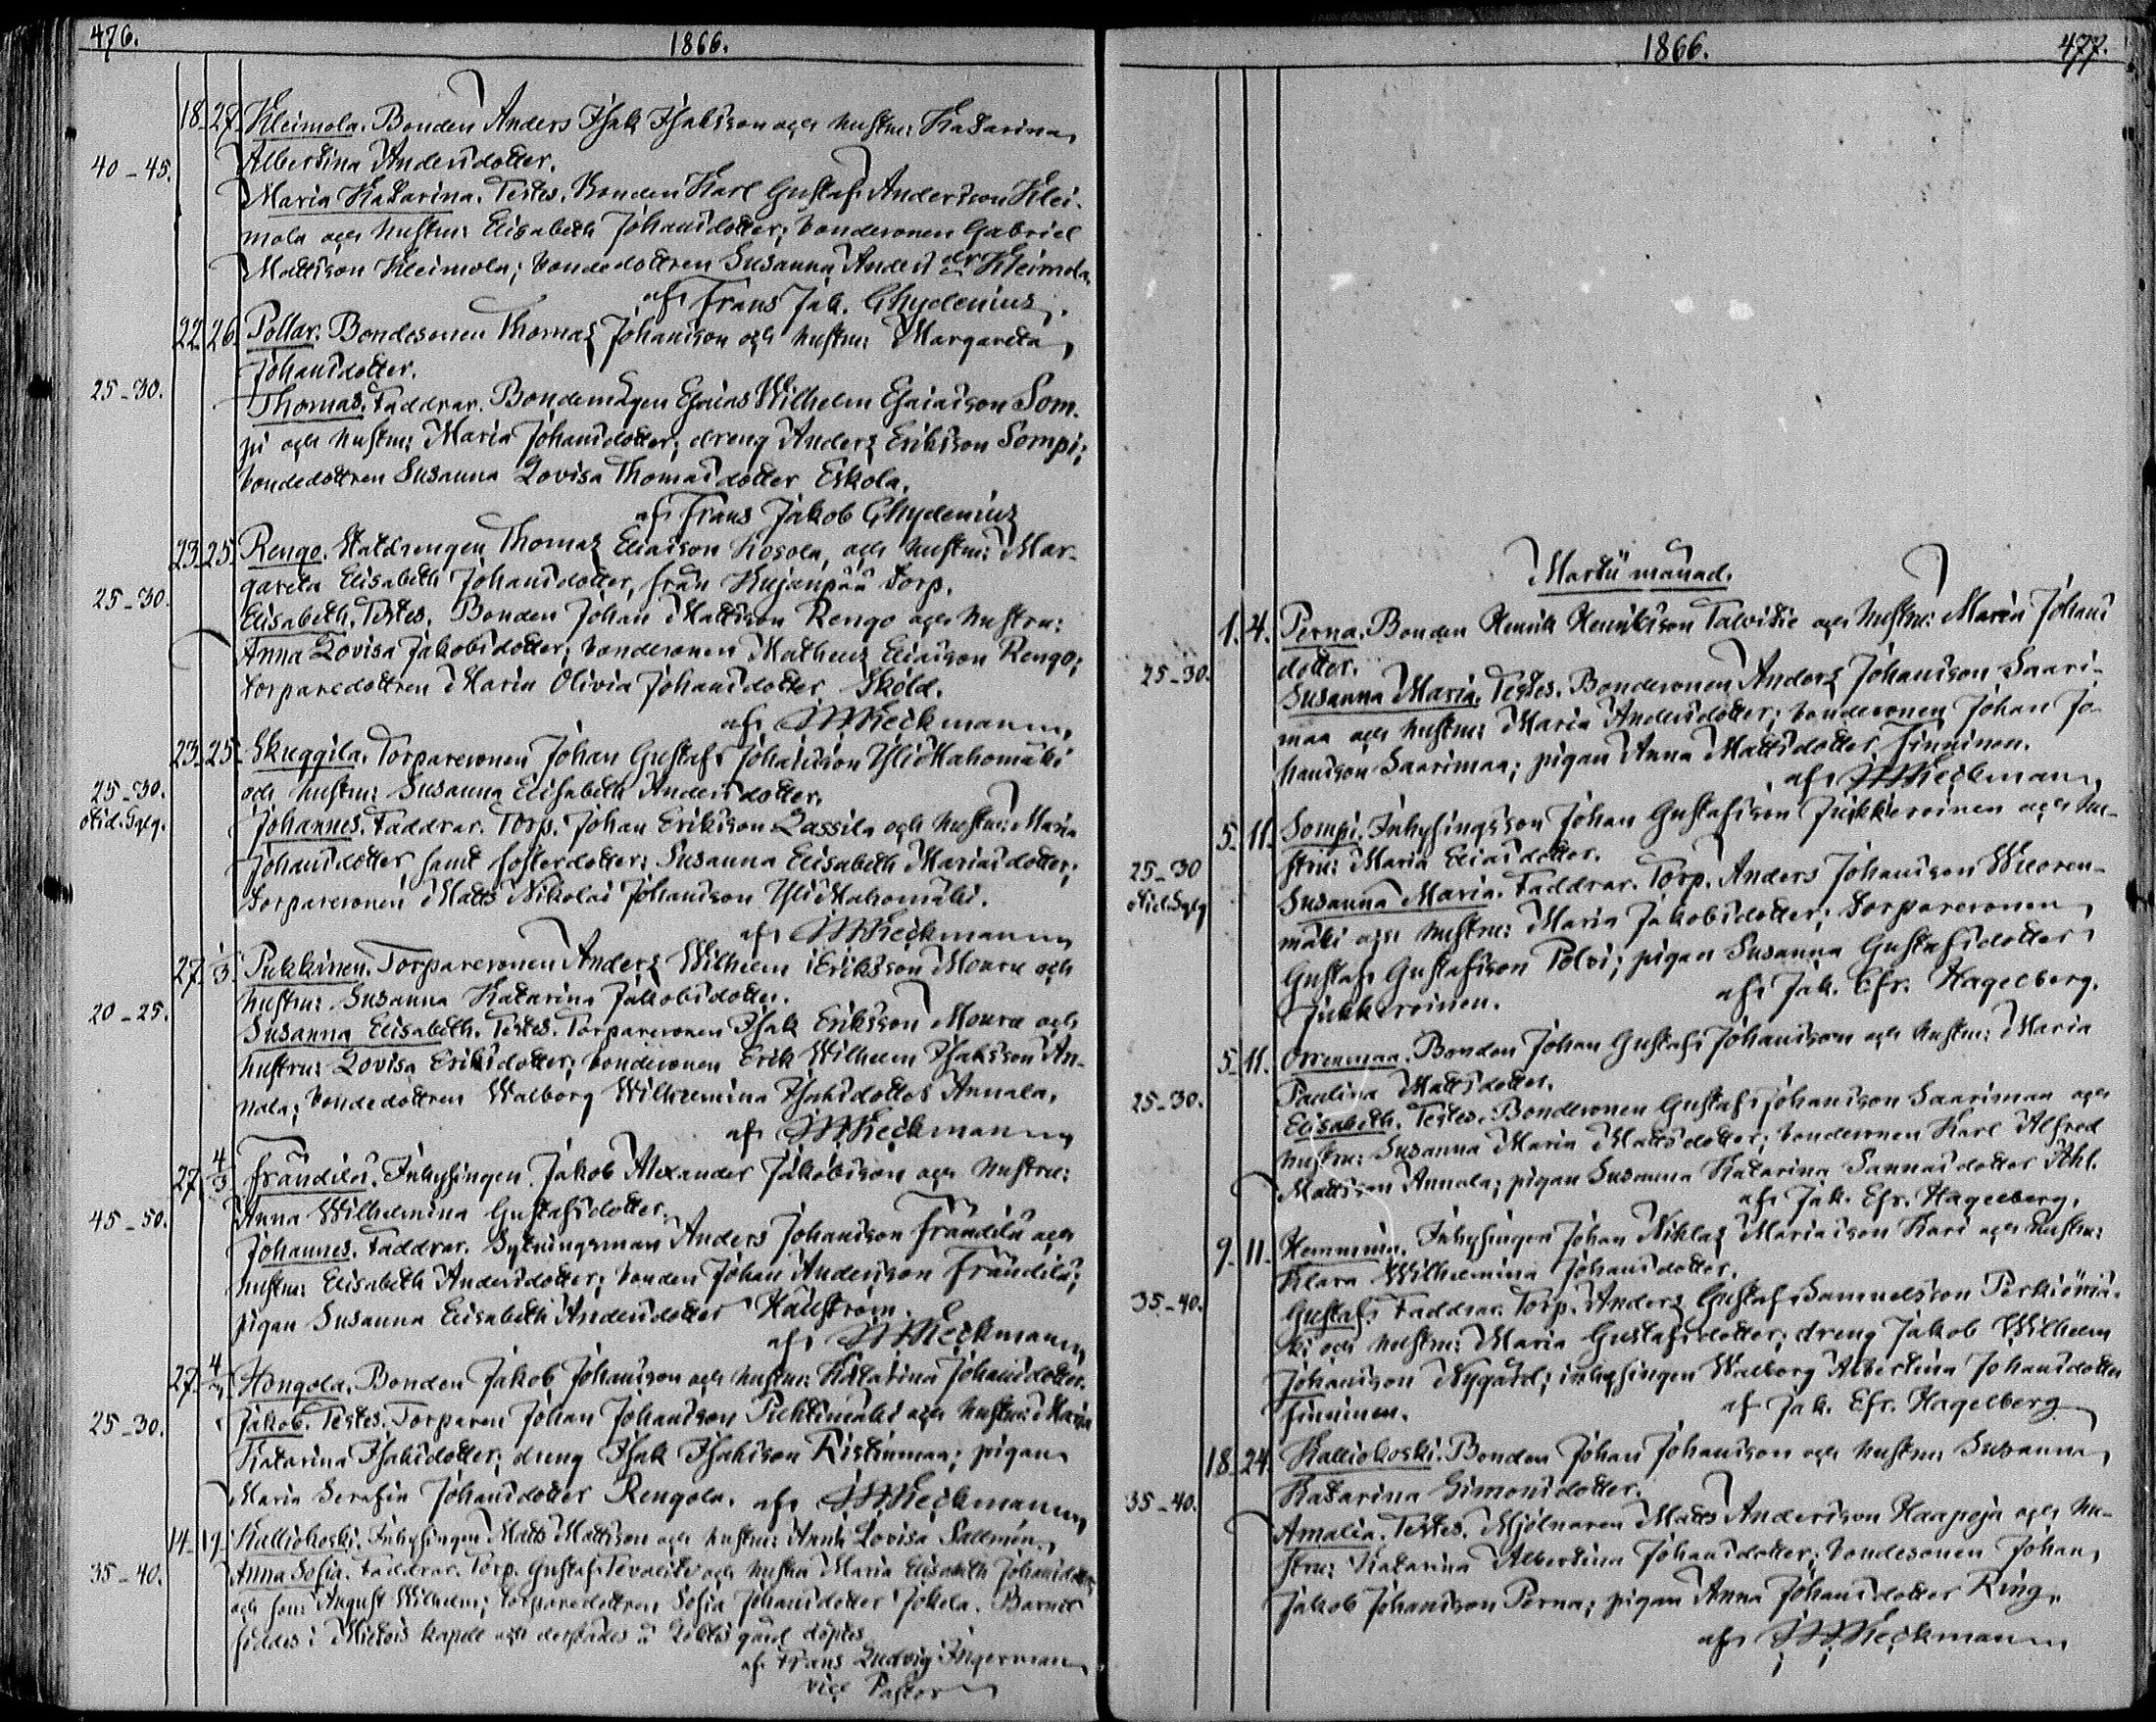 476.
1866.
18. 27. Kleimola. Bonden Anders Isak Isaksson och hustru: Katarina
40-45. Albertina Andersdotter.
Maria Katarina. Testes. Bonden Karl Gustaf Andersson Klei-
mola och hustru: Elisabeth Johansdotter; bondesonen Gabriel
Mattsson Kleimola; bondedottren Susanna Anders dr Kleimola.
af Frans Jak. Chydenius.
22. 26. Pollar. Bondesonen Thomas Johansson och hustru: Margareta
Johansdotter.
25-30. Thomas. Faddrar. Bondemågen Esaias Wilhelm Esaiasson Som-
pi och hustru: Maria Johansdotter; dreng Anders Eriksson Sompi;
bondedottren Susanna Lovisa Thomasdotter Eskola.
af Frans Jakob Chydenius
23. 25. Rengo. Statdrengen Thomas Eliasson Kosola, och hustru: Mar-
gareta Elisabeth Johansdotter, från Kujanpää torp.
25-30. Elisabeth. Testes. Bonden Johan Mattsson Rengo och hustru:
Anna Lovisa Jakobsdotter; bondesonen Matheus Eliasson Rengo;
torparedottren Maria Olivia Johansdotter Sköld.
af Heckmann
23. 25. Skuggila. Torparesonen Johan Gustaf Johansson Yli Kahomäki
25-30. och hustru: Susanna Elisabeth Andersdotter.
Johannes. Faddrar. Torp. Johan Eriksson Lassila och hustru: Maria
Johansdotter samt fosterdotter: Susanna Elisabeth Mariasdotter;
torparesonen Matts Nikolai Johansson Yli Kahomäki.
af Heckmann
27. 1/3. Pukkinen. Torparesonen Anders Wilhelm Eriksson Mouru och
hustru: Susanna Katarina Jakobsdotter.
20-25. Susanna Elisabeth. Testes. Torparesonen Isak Eriksson Mouru och
hustru: Lovisa Eriksdotter; bondesonen Erik Wilhelm Isaksson An-
nala; bondedottren Walborg Wilhelmina Isaksdotter Annala.
af Heckmann
27. 4/3 Frändilä. Inhysingen Jakob Alexander Jakobsson och hustru:
Anna Wilhelmina Gustafsdotter.
45-50. Johannes. Faddrar. Sytningsman Anders Johansson Frändilä och
hustru: Elisabeth Andersdotter; bonden Johan Andersson Frändilä;
pigan Susanna Elisabeth Andersdotter Hällström.
af Heckmann
27. 4/3. Hongola. Bonden Jakob Johansson och hustru: Katarina Johansdotter.
25-30. Jakob. Testes. Torparen Johan Johansson Puhtimäki och hustru: Maria
Katarina Isaksdotter; dreng Isak Isaksson Ristinmaa; pigan
Maria Serafia Johansdotter Rengola. af Heckmann
14. 19. Kalliokoski. Inhysingen Matts Mattsson och hustru: Anna Lovisa Sallmén.
35-40. Anna Sofia. Faddrar. Torp. Gustaf och hustru Maria Elisabeth Johansdotter
och son: August Wilhelm; torparedottren Sofia Johansdotter Jokela. Barnet
föddes i Mietois kapell och derstädes å gård döptes
af Frans Ludvig Ingerman
vice Pastor
1866.
477.
Martii månad.
1. 4. Perna. Bonden Henrik Henriksson Talvitie och hustru: Maria Johans
dotter.
25-30. Susanna Maria. Testes. Bondesonen Anders Johansson Saari-
maa och hustru: Maria Andersdotter; bondesonen Johan Jo-
hansson Saarimaa; pigan Anna Mattsdotter Finninen.
af Heckmann
5. 11. Sompi. Inhysingsson Johan Gustafsson och hu-
25-30 stru: Maria Eliasdotter.
Susanna Maria. Faddrar. Torp. Anders Johansson Wuoren-
mäki och hustru: Maria Jakobsdotter; torparesonen
Gustaf Gustafsson Polvi; pigan Susanna Gustafsdotter
af Jak. Efr. Hagelberg.
5. 11. Orrenmaa. Bonden Johan Gustaf Johansson och hustru: Maria
Paulina Mattsdotter.
25-30. Elisabeth. Testes. Bondesonen Gustaf Johansson Saarimaa och
hustru: Susanna Maria Mattsdotter; bondesonen Karl Alfred
Mattsson Annala; pigan Susanna Katarina Sannasdotter Ahl.
af Jak. Efr. Hagelberg.
9. 11. Hemminki. Inhysingen Johan Niklas Mariasson Kari och hustru:
Klara Wilhelmina Johansdotter.
35-40. Gustaf. Faddrar. Torp. Anders Gustaf Samuelsson Perkiömä-
ki och hustru: Maria Gustafsdotter; dreng Jakob Wilhelm
Johansson Nygård; inhysingen Walborg Albertina Johansdotter
Finninen. af Jak. Efr. Hagelberg
18. 24. Kalliokoski. Bonden Johan Johansson och hustru Susanna
Katarina Simonsdotter.
35-40. Amalia. Testes. Mjölnaren Matts Andersson Haapoja och hu-
stru: Katarina Albertina Johansdotter; bondesonen Johan
Jakob Johansson Perna; pigan Anna Johansdotter Ring.
af Heckmann